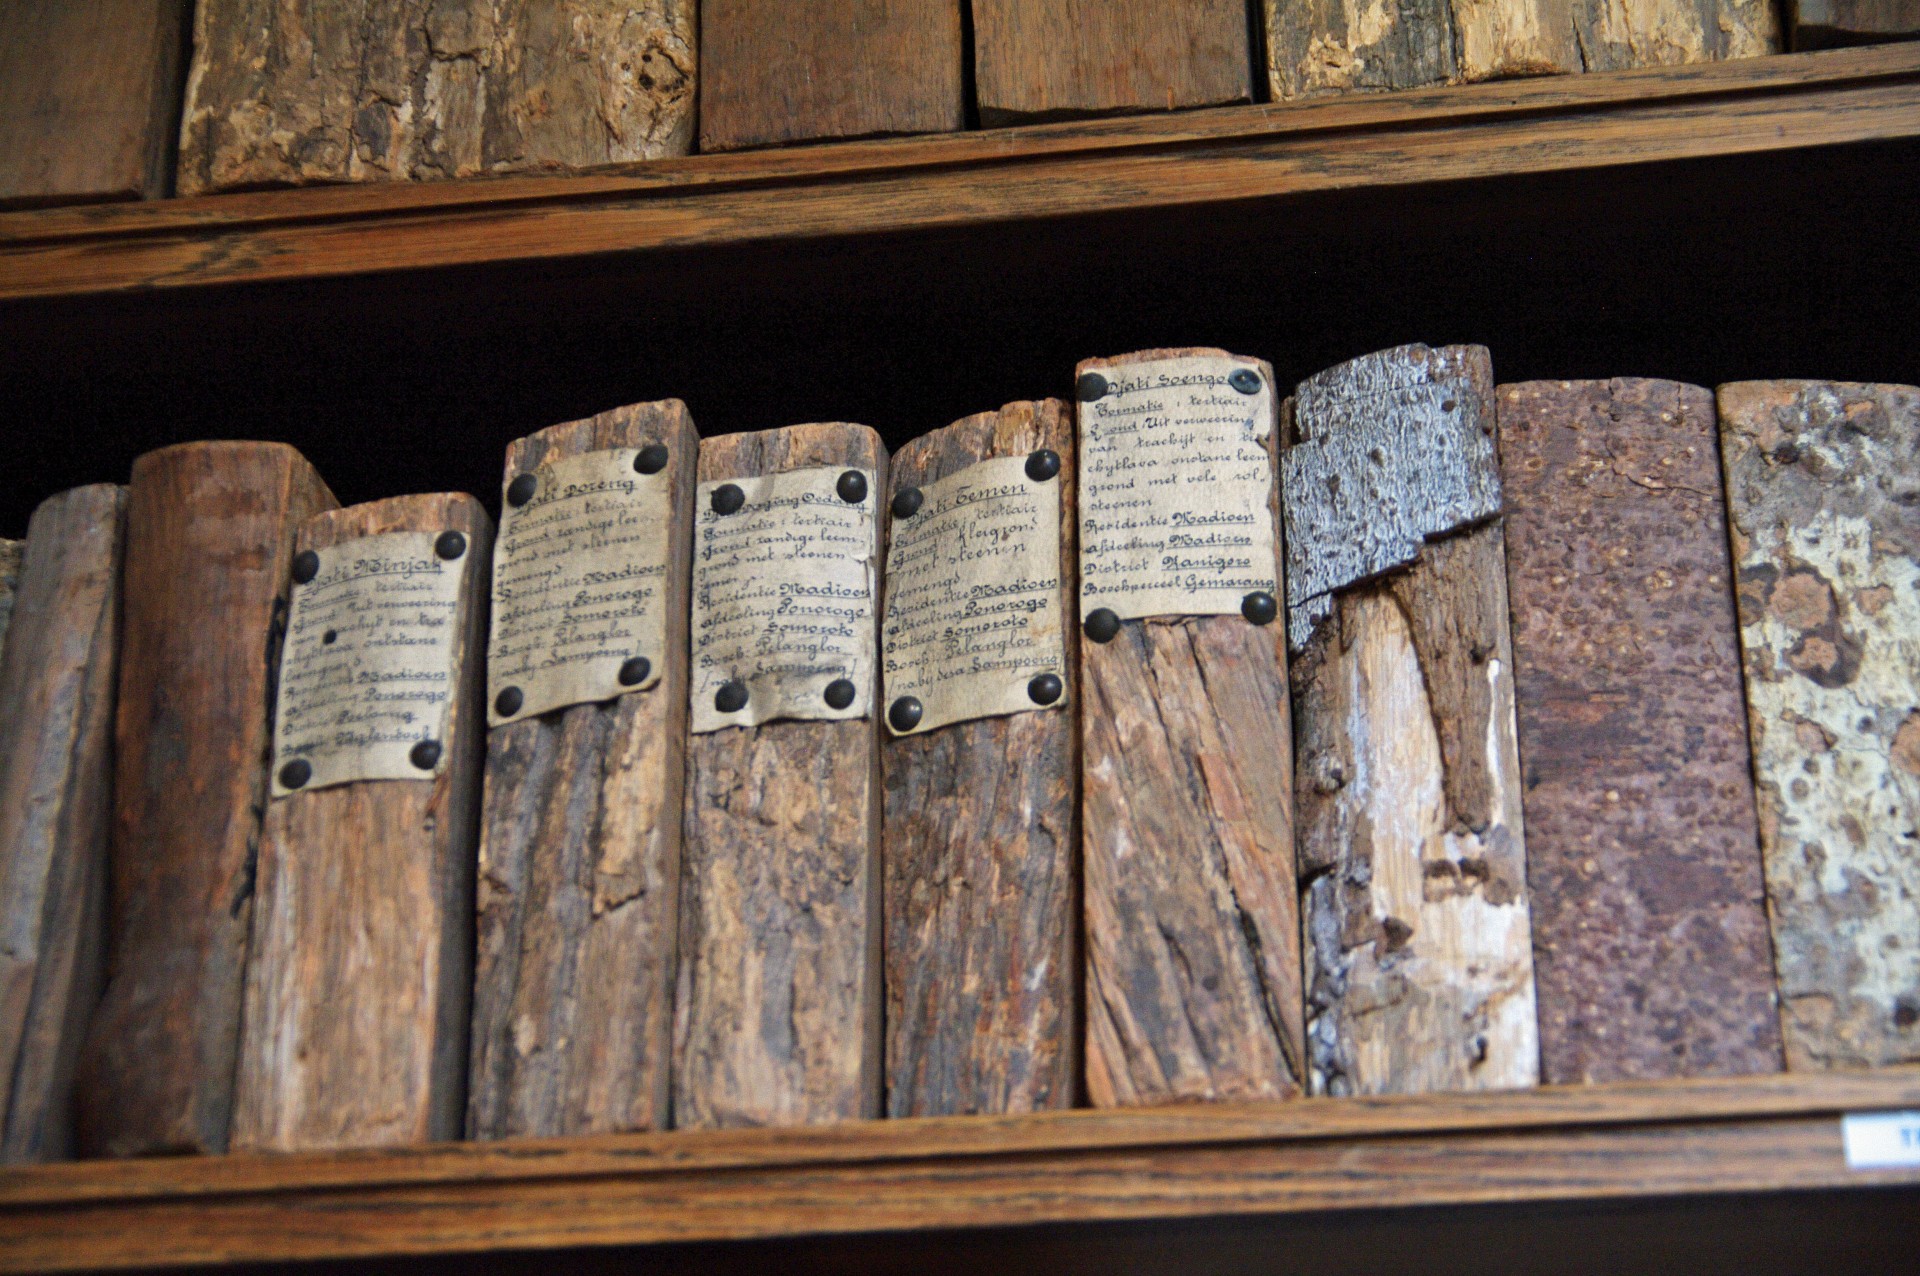 Djati Minjak
Formatie: tertiair
Grond: Uit verweering
van trachyt en tra-
chytlava ontstane
leemgrond
Residentie Madioen
afdeeling Ponorogo
District
Djati Doreng
Formatie: tertiair
Grond zandige leem-
grond met steenen
gemengd
Residentie Madioen
afdeeling Ponorogo
District Somoroto
Bosch: Pelanglor
nabij Sampoeng
Formatie: tertiair
Grond zandige leem-
grond met steenen
Residentie Madioen
afdeeling Ponorogo
District Somoroto
Bosch: Pelanglor
[nabij Sampoeng]
Djati Temen
Formatie: tertiair
Grond: kleigrond
met steenen
gemengd
Residentie Madioen
afdeeling Ponorogo
District Somoroto
Bosch: Pelanglor
[nabij desa Sampoeng
Djati Soengo
Formatie: tertiair
Grond Uit verweering
van trachijt en
chytlava onstane leem
grond met vele rol-
steenen
Residentie Madioen
afdeeling Madioen
District
Boschperceel Gemarang